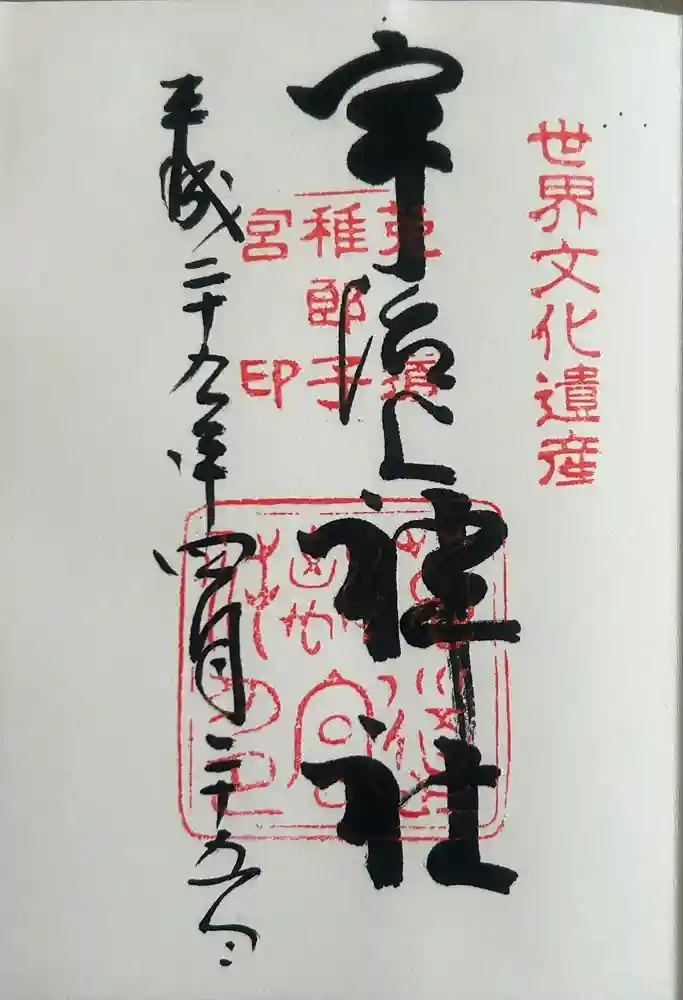 世界文化遺産
宇治上神社
菟道
稚郎子
宮印
平成二十九年四月二十五日